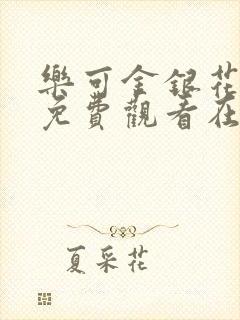 樂可金銀花
免費觀看在
夏采花